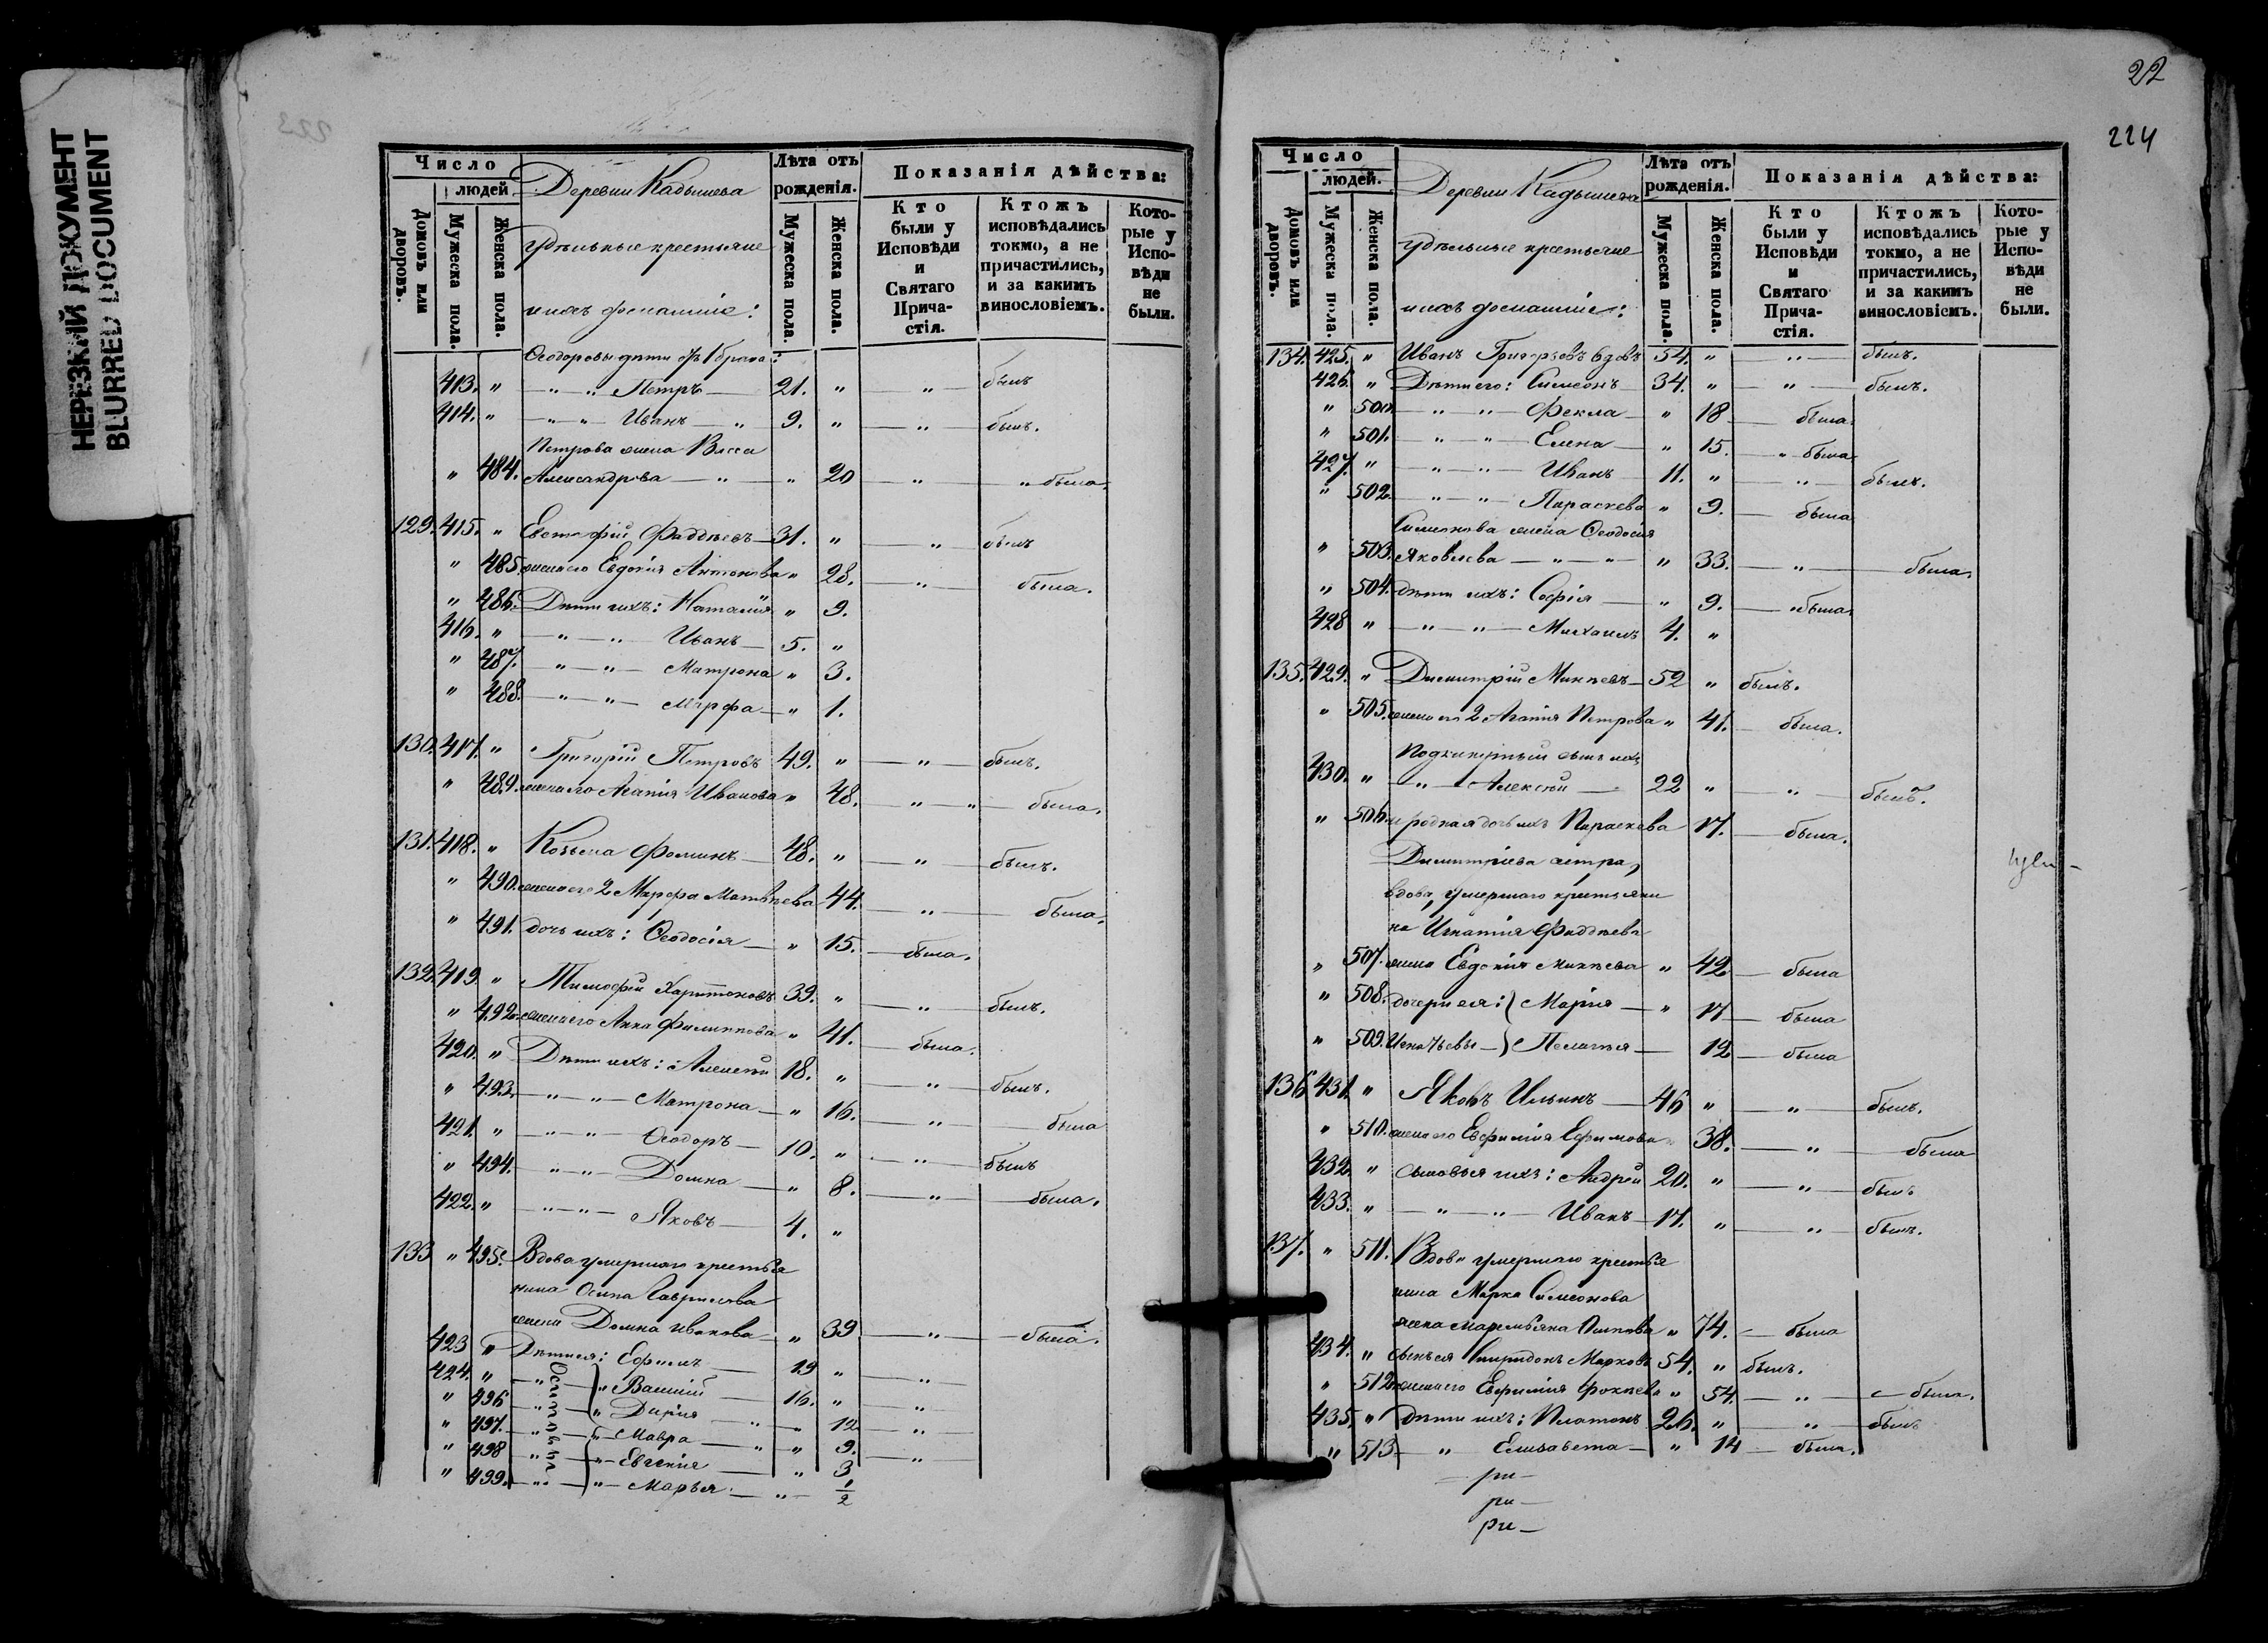 НЕРЕЗКИЙ ДОКУМЕНТ
BLURRED DOCUMENT
223
Число
людей
Домовъ или дворовъ.
Мужеска пола.
Женска пола.
Деревни Кадышева
удѣльные крестьяне
и ихъ домашніе:
Лѣта отъ рожденія.
Мужеска пола.
Женска пола.
Показанія дѣйства:
Кто были у Исповѣди и Святаго Прича-стія.
Ктожъ исповѣдались токмо, а не причастились, и за какимъ винословіемъ.
Кото-рые у Испо-вѣди не были.
Ѳеодоровы дѣти 1 брака:
413. " — " " Петръ — 21. " " былъ
414. " — " — " — Иванъ — " 9. " — " — былъ.
Петрова жена Васса
" 484. Александрова — " — " 20 — " — " была.
129. 415. " Евстафій Фаддѣевъ — 31. " — " — былъ
" 485. жена его Евдокія Антонова " 28. — " — была.
" 486. Дѣти ихъ: Наталія " 9.
416. " — " — " — Иванъ — 5. "
" 487. — " — " — Матрона " 3.
" 488. — " — " — Марфа — " 1.
130. 417. " Григорій Петровъ 49. " — " — былъ.
" 489. жена его Агапія Иванова " 48. — " — " — была.
131. 418. " Козьма Фоминъ — 48. " — " — былъ.
" 490. жена его 2 Марфа Матвѣева 44. — " — была.
" 491. дочь ихъ: Ѳеодосія — " 15. — была.
132. 419. " Тимофей Харитоновъ 39. " — " — былъ.
" 492. жена его Анна Филиппова " 41. — была.
420. " Дѣти ихъ: Алексѣй 18. " — " — былъ.
" 493. — " — " — Матрона — " 16. — " — была
421. " — " — " — Ѳеодоръ — 10. " — " — былъ
" 494. " — " — Домна — " 8. — " — была.
422. " — " — " — Яковъ — 4. "
133 " 495. Вдова умершаго крестья
нина Осипа Гаврилова
жена Домна Иванова — " 39 — " — была.
423 " Дѣти ея: Ефимъ — 19 " — " —
424. " — " — " Василій — 16. " — " —
" 496 — " — " Дарія — " — " 12 — " —
" 497. — " — " — Мавра — " " 9. — " —
" 498 " — " — Евгенія — " 3
" 499. — " — " — Марья — " — 1/2
Осиповы
22
224
Число
людей.
Домовъ или дворовъ.
Мужеска пола.
Женска пола.
Деревни Кадышева
удѣльные крестьяне
и ихъ домашніе:
Лѣта отъ рожденія.
Мужеска пола.
Женска пола.
Показанія дѣйства:
Кто были у Исповѣди и Святаго Прича-стія.
Ктожъ исповѣдались токмо, а не причастились, и за какимъ винословіемъ.
Кото-рые у Испо-вѣди не были.
134. 425. " Иванъ Григорьевъ вдовъ 54. " — " — былъ.
426. " Дѣти его: Симеонъ — 34. " — " — былъ.
" 500. — " — " — Фекла — " 18 — была.
" 501. — " — " — Елена — " 15. — " была.
427. " — " — " — Иванъ — 11. " — " — былъ.
" 502. — " — " — Параскева " 9. — была
Симеонова жена Ѳеодосія
" 503. Яковлева — " — " — " 33. — " — была.
" 504. дѣти ихъ: Софія — " 9. — " была.
428 " — " — " — Михаилъ 4. "
135. 429. " Димитрій Минѣевъ — 52 " былъ.
" 505. жена его 2 Агапія Петрова " 41. — была.
Подкинутый сынъ ихъ
430. " — " — Алексѣй — 22 " — " — былъ.
" 506. и родная дочь ихъ Параскева 17. — была.
Димитріева сестра,
вдова, умершаго крестьяни
на Игнатія Фаддѣева
" 507. жена Евдокія Минѣева " 42 — была
" 508. дочери ея: Марія — " 17 — была
" 509. Игнатьевы — Пелагія — 12 — была
136 431. " Яковъ Ильинъ — 46 " — " — былъ.
" 510. жена его Евфимія Ефимова " 38. — " — была
432. " сыновья ихъ: Андрей 20. " — " — былъ
433. " — " — " — Иванъ — 17. " — " — былъ.
137. " 511. Вдова умершаго крестья
нина Марка Симеонова
жена Маремьяна Осипова " 74. — была
434. " сынъ ея Спиридонъ Марковъ 54. " былъ.
" 512. жена его Евфимія Фокѣева " 54. — " — была.
435. " дѣти ихъ: Платонъ 26. " — " — былъ
" 513 — " Елизавета — " 14 — была.
ри —
ри —
ри —